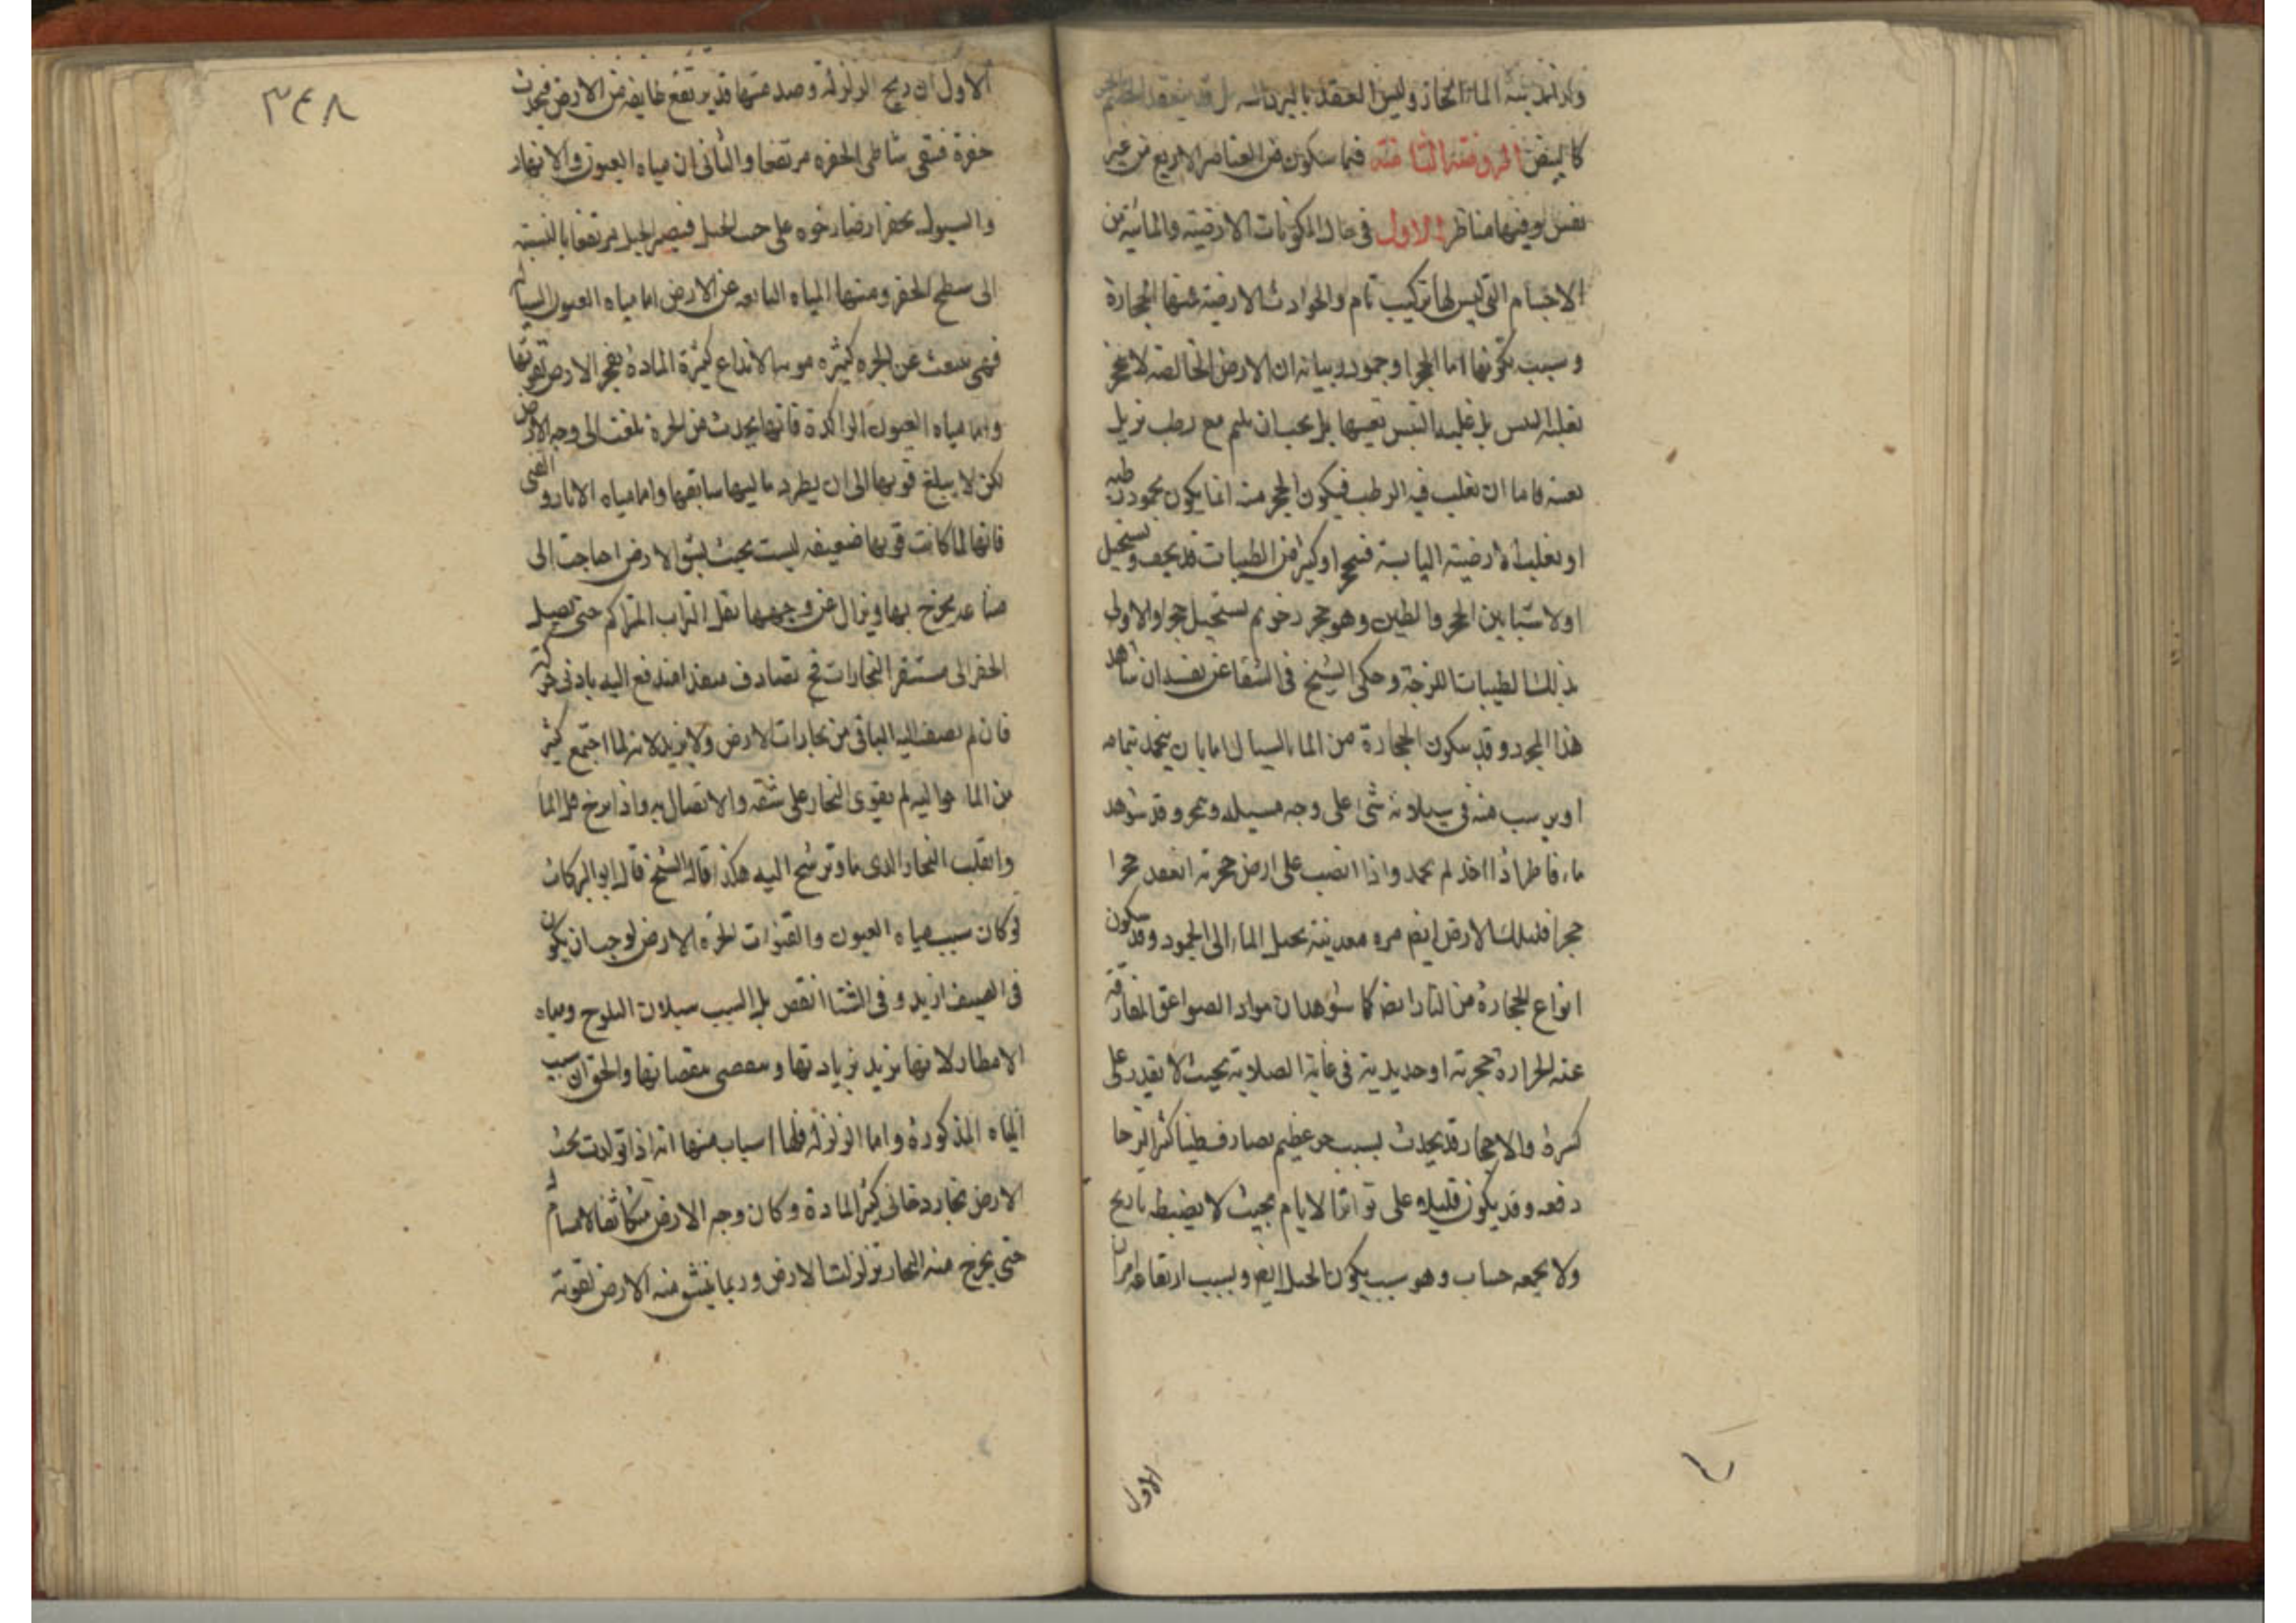 كالبيض الروضة الثامنة فيما يتكون من العناصر الاربع من غير
نفس وفيها مناظر الاول فى حال المكونات الارضية والمائية من
الاجسام التى ليس لها تركيب تام والحوادث الارضية منها الحجارة
وسبب تكونها اما تفجر او جمود وبيانه ان الارض الخالصة لا تتحجر
تعينه فاما ان تغلب فيه الرطب فيكون الحجر منه انما يكون بجمود رطبه
او تغلب الارضية اليابسة فتتحجر او كثير من الطينات قد يجف ويستحيل
اولا شيئا بين الحجر والطين وهو حجر رخو ثم يستحيل حجرا والاولى
بذلك الطينات اللزجة وحكى الشيخ فى الشفا عن نفسه ان شاهد
هذا التحجر وقد يتكون الحجارة من الماء السيال اما بان ينجمد بتمامه
او يرسب منه فى سيلانه شئ على وجه مسيله ويتحجر وقد شوهد
ماء قاطر اذا اخذ لم يجمد واذا انصب على ارض حجرية انعقد حجرا
حجرا فلتلك الارض ايضا قوة معدنية تحيل الماء الى الجمود وقد يتكون
انواع الحجارة من النار ايضا كما شوهد ان مواد الصواعق المفارقة
عنه الحرارة حجرية او حديدية فى غاية الصلابة بحيث لا يقدر على
كسره والاحجار قد يحدث بسبب حر عظيم يصادف طينا كثيرا لزجا
دفعه وقد يكون قليلا على تواتر الايام بحيث لا يضبطه تاريخ
ولا يجمعه حساب وهو سبب تكون الجبل ايضا وبسبب ارتفاعه امران
الاول
٣٤٨
الاول ان ريح الزلزلة وصدمتها قد يرتفع طايفة من الارض فيحدث
حفرة فيبقى شاطى الحفره مرتفعا والثانى ان مياه العيون والانهار
والسيول تحفر ارضا رخوه على جنب الجبل فيصير الجبل مرتفعا بالنسبة
الى سطح الحفر ومنها المياه النابعة عن الارض اما مياه العيون السيالة
فهى تنبعث عن ابخرة كثيره قوية الاندفاع كثيرة المادة تفجر الارض بقوتها
واما مياه العيون الراكدة فانها يحدث من ابخرة بلغت الى وجه الارض
لكن لا يبلغ قوتها الى ان يطرد تاليها سابقها واما مياه الابار والقنى
فانها لما كانت قوتها ضعيفه ليست بحيث يشق الارض احتاجت الى
صناعة يخرج بها ويزال عن وجهها ثقل التراب المتراكم حتى يصل
الحفر الى مستقر البخارات فح تصادف منفذا فتندفع اليه بادنى حركة
فان لم يضف اليه الباقى من بخارات الارض ولا يزيد لانه لما اجتمع كثير
من الماء حواليه لم يقوى البخار على شقه والاتصال به واذا نزح هذا الما
وانقلب البخار الذى ماء وترشح اليه هكذا قاله الشيخ قال ابو البركات
لو كان سبب مياه العيون والقنوات ابخرة الارض لوجب ان يكون
فى الصيف ازيد وفى الشتا انقص بل السبب سيلان الثلوج ومياه
الامطار لانها تزيد بزيادتها وتنقص بنقصانها والحق ان سبب
المياه المذكورة واما الزلزلة فلها اسباب منها انه اذا تولدت تحت
الارض بخار دخانى كثير المادة وكان وجه الارض متكاثفا لا مسام له
حتى يخرج منه البخار تزلزلت الارض وربما ينشق منه الارض لقوته